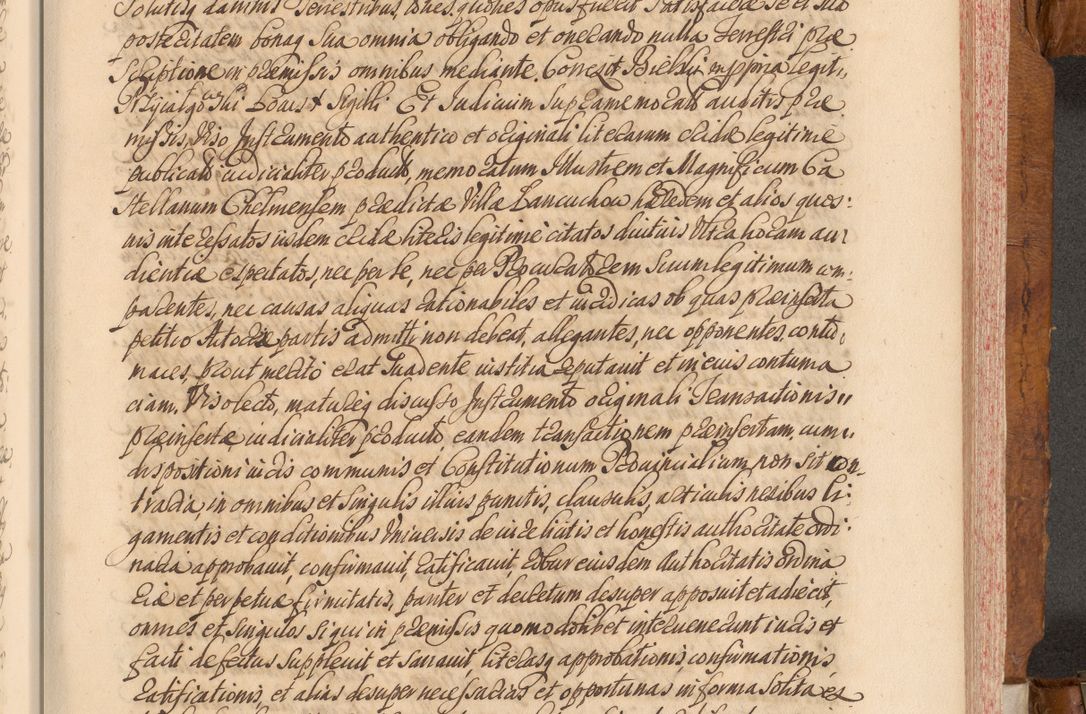 Solutis damnis Terrestribus, toties, quoties opus fuerit satisfacere se et suc
postecitatem bonaq sua omnia obligando et onerando nulla Terrestri præ
Scriptione in præmissis omnibus mediante. Coresq Bielsky mppria legit
Przyialgowski Locus Sigilli Et Judicium supramemorat auditis præ
missis, viso Instrumento authentico et originali literarum cridæ legitime
publicat iudicialiter product, memoratum Illustrem et Magnificum Ca
stellanum Chelmensem prædictæ Villæ Lancuchow hæredem et alios quos
uis interessatos iisdem cridæ literis legitime citatos diutius Vltra horam au
dientiæ expectatos, nec per se, nec per Procuratorem suum legitimum com
parentes, nec causas aliquas rationabiles et iuridicas ob quas præinserta
petitio Actoreæ partis admitti non debeat, allegantes, nec opponentes, contu
maces, prout merito erat suadente iustitia reputauit et in eius contuma
ciam. Viso lecto, matureq discusso Instrumento originali Transactionis
præinsertæ iudicialiter producto eandem transactionem præinsertam, cum
dispositioni iuris communis et Constitutionum Prouincialium non sit con
traria, in omnibus et singulis illius punctis, clausulis, articulis nexibus li
gamentis et conditionibus vniuersis de iure licitis et honestis authoritate ordi
naria approbauit, confirmauit, ratificauit, robur eiusdem authoritatis ordina
riæ et perpetuæ firmitatis, pariter et decretum desuper apposuit et adiecit,
omnes et singulos si qui in præmissis quomodolibet interuenerunt iuris et
facti defectus suppleuit et sanauit literasq approbationis, confirmationis,
ratificationis, et alias desuper necessarias et opportunas in forma solita ex